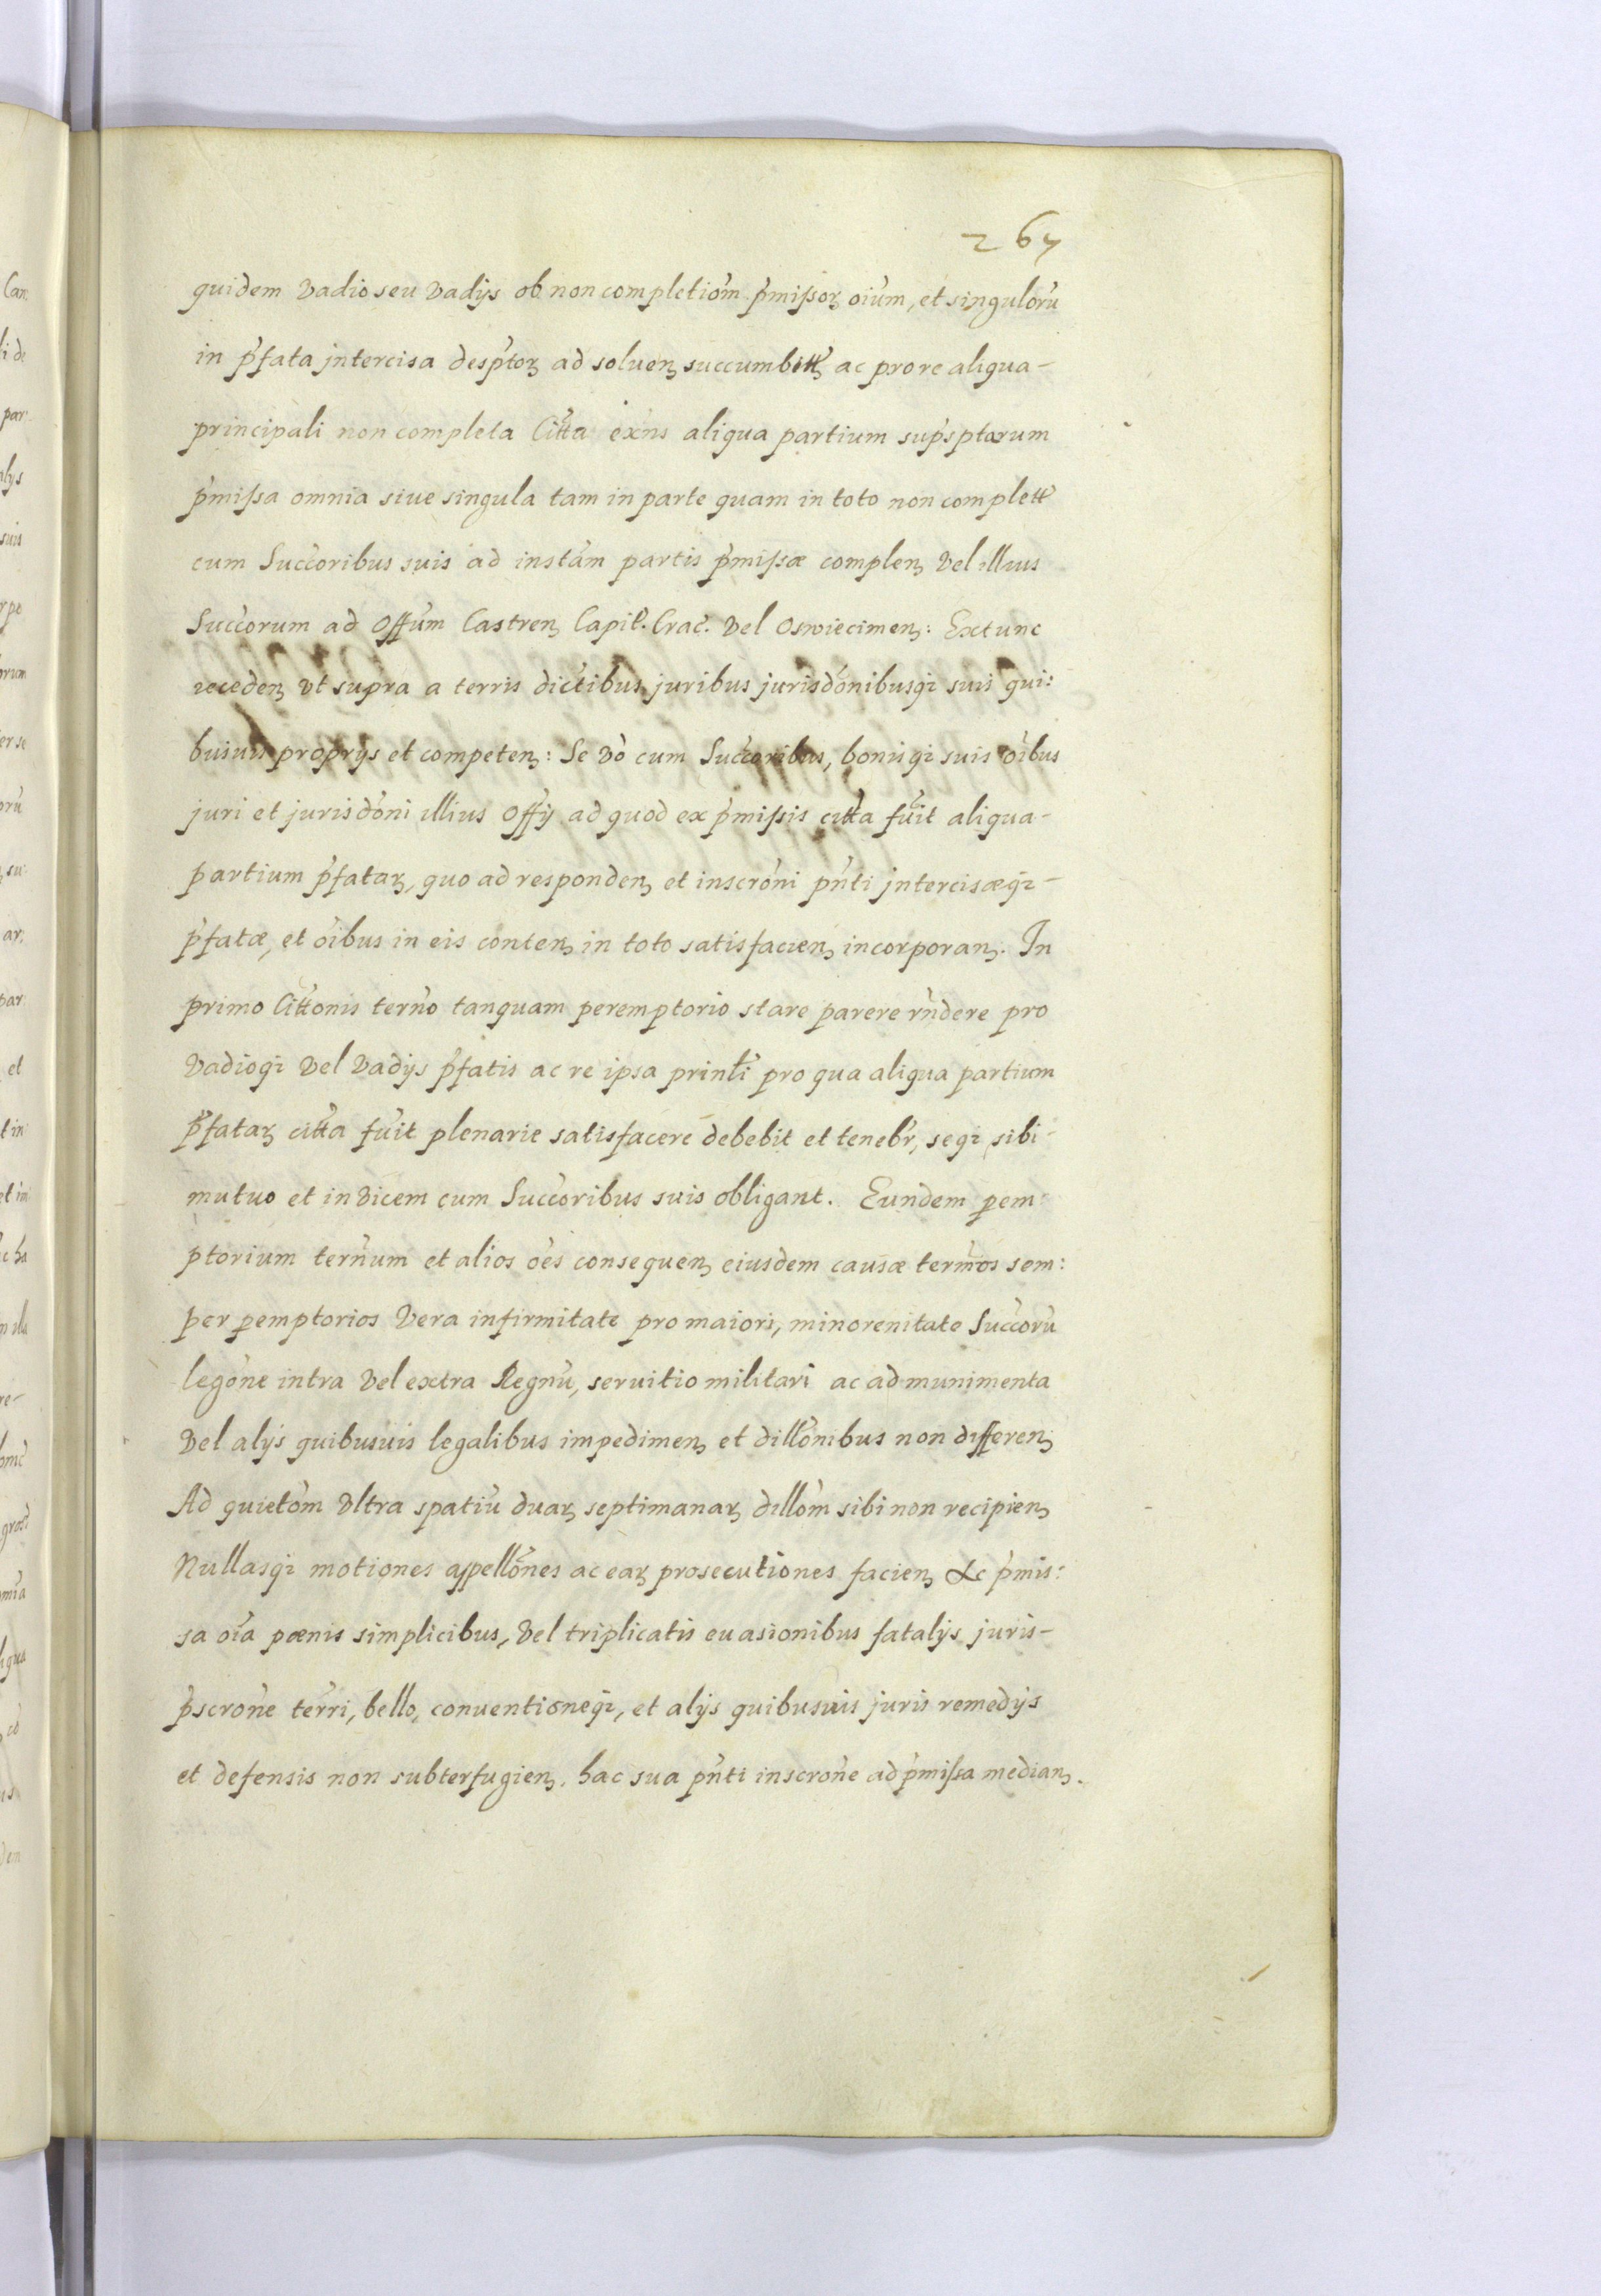 267
quidem vadio seu vadijs ob non completiom̃ p̃missoꝝ oiũm, et singulorũ
in p̃fata jntercisa desp̃toꝝ ad soluenꝫ ac pro re aliqua-
principali non completa Citta exñs aliqua partium sup̃sptorum
p̃missa omnia siue singula tam in parte quam in toto non complett̃
cum Succ̃oribus suis ad instam̃ partis p̃missæ complenꝫ vel illius
Succ̃orum ad Offũm Castrenꝫ Capit̃. Crac̃. vel Oswiecimenꝫ: Extunc
recedenꝫ vt supra a terris dictibus juribus jurisdõnibusqꝫ suis qui:
busuis proprijs et competenꝫ: Se võ cum Succ̃oribus, bonisqꝫ suis oĩbus
juri et jurisdõni illius Offij̃ ad quod ex p̃missis citta fũit aliqua-
partium p̃fataꝝ, quo ad respondenꝫ et inscrõni pñti jntercisæqꝫ-
p̃fatæ, et oĩbus in eis contenꝫ in toto satisfacienꝫ incorporanꝫ. In
primo Cittonis terño tanquam peremptorio stare parere rñdere pro
vadioqꝫ vel vadijs p̃fatis ac re ipsa prinlĩ pro qua aliqua partium
p̃fataꝝ citta fũit plenarie satisfacere debebit et tenebr̃, seqꝫ sibi-
mutuo et in vicem cum Succ̃oribus suis obligant. Eundem p̱em
ptorium terñum et alios oẽs consequenꝫ eiusdem causæ term̃os sem:
per p̱emptorios vera infirmitate pro maiori, minorenitate Succ̃orũ
legõne intra vel extra Regnũ, seruitio militari ac ad munimenta
vel alijs quibusuis legalibus impedimenꝫ et dillõnibus non differenꝫ
Ad quietom̃ vltra spatiũ duaꝝ septimanaꝝ dillom̃ sibi non recipienꝫ
Nullasqꝫ motiones appellõnes ac eaꝝ prosecutiones facienꝫ &c p̃mis:
sa oĩa pœnis simplicibus, vel triplicatis euasionibus fatalijs juris-
p̃scrone terri, bello, conuentioneqꝫ, et alijs quibusuis juris remedijs
et defensis non subterfugienꝫ, hac sua pñti inscrone ad p̃missa medianꝫ.